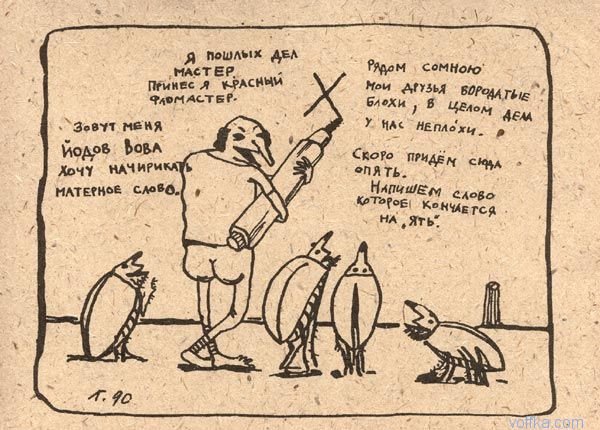 Я пошлых дел
мастер
принес я красный
фломастер.
Зовут меня
Йодов Вова
хочу начирикать
матерное слово.
Х
Рядом сомною
мои друзья бородатые
блохи, в целом дела
у нас неплохи.
Скоро придём сюда
опять.
Напишем слово
которое кончается
на „ять".
Г. 90
volfka.com